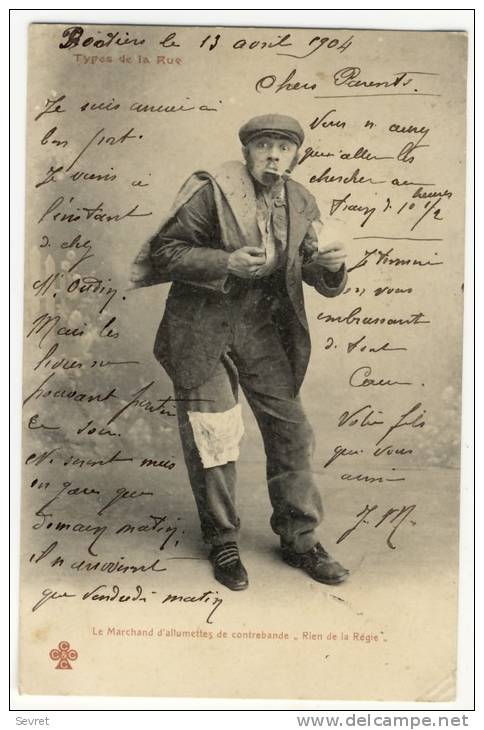 Poitiers le 13 avril 1904
Types de la Rue
Chers Parents.
Je suis arrivé à
bon port.
Je viens à
l'instant
de chez
Mr Oudin.
Mais les
livres ne
pouvant partir
ce soir.
Ne seront mis
en gare que
demain matin;
il n'arriveront
que vendredi matin
Vous n'aurez
qu'aller les
chercher au
train de 10 heures 1/2
Je termine
en vous
embrassant
de tout
Cœur.
Votre fils
qui vous
aime
J. M.
Le Marchand d'allumettes de contrebande „ Rien de la Régie "
CCCC
Sevret
© delcampe.net